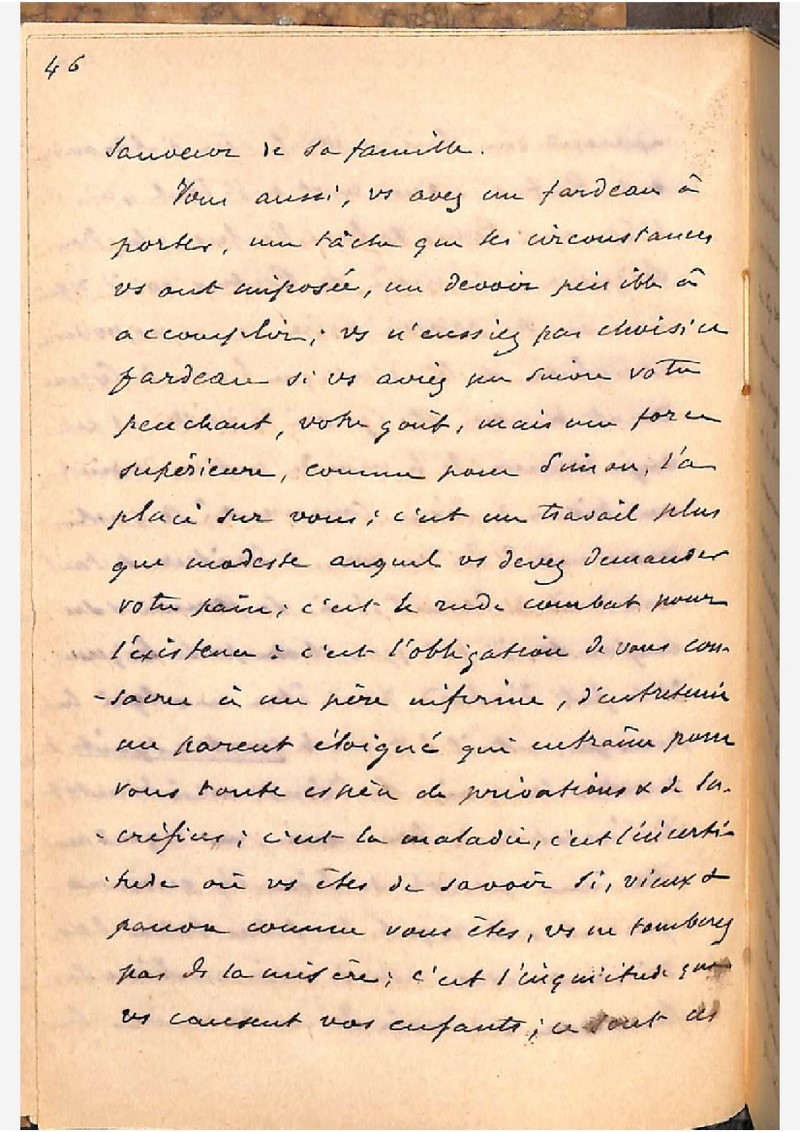 46
Sauveur de sa famille.
Vous aussi, vs avez un fardeau à
porter, une tâche que les circonstances
vs ont imposée, un devoir pénible à
accomplir; vs n'eussiez pas choisi ce
fardeau si vs aviez pu suivre votre
penchant, votre goût, mais une force
supérieure, comme pour Simon, l'a
placé sur vous; c'est un travail plus
que modeste auquel vs devez demander
votre pain; c'est le rude combat pour
l'existence; c'est l'obligation de vous con-
-sacrer à un père infirme, d'entretenir
un parent éloigné qui entraîne pour
vous toute espèce de privations & de sa-
-crifices; c'est la maladie, c'est l'incerti-
-tude où vs êtes de savoir si, vieux &
pauvre comme vous êtes, vs ne tomberez
pas ds la misère; c'est l'inquiétude que
vs causent vos enfants; ce sont des